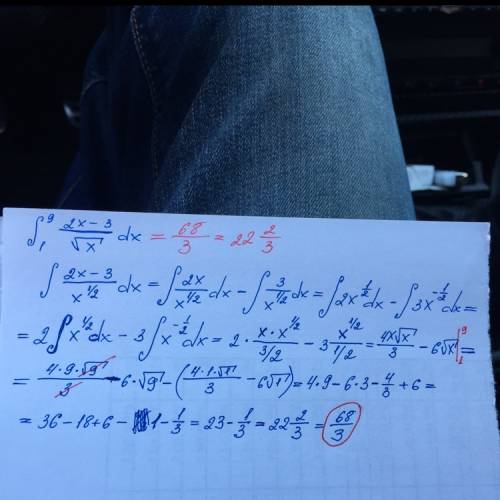 ∫₁⁹ (2x − 3)/√x dx = 68/3 = 22 2/3
∫ (2x − 3)/x^(1/2) dx = ∫ 2x/x^(1/2) dx − ∫ 3/x^(1/2) dx = ∫ 2x^(1/2) dx − ∫ 3x^(−1/2) dx =
= 2 ∫ x^(1/2) dx − 3 ∫ x^(−1/2) dx = 2 · (x · x^(1/2))/(3/2) − 3 x^(1/2)/(1/2) = 4x√x/3 − 6√x |₁⁹ =
= (4 · 9 · √9)/3 − 6 · √9 − ((4 · 1 · √1)/3 − 6√1) = 4 · 9 − 6 · 3 − 4/3 + 6 =
= 36 − 18 + 6 − 1 − 1/3 = 23 − 1/3 = 22 2/3 = 68/3